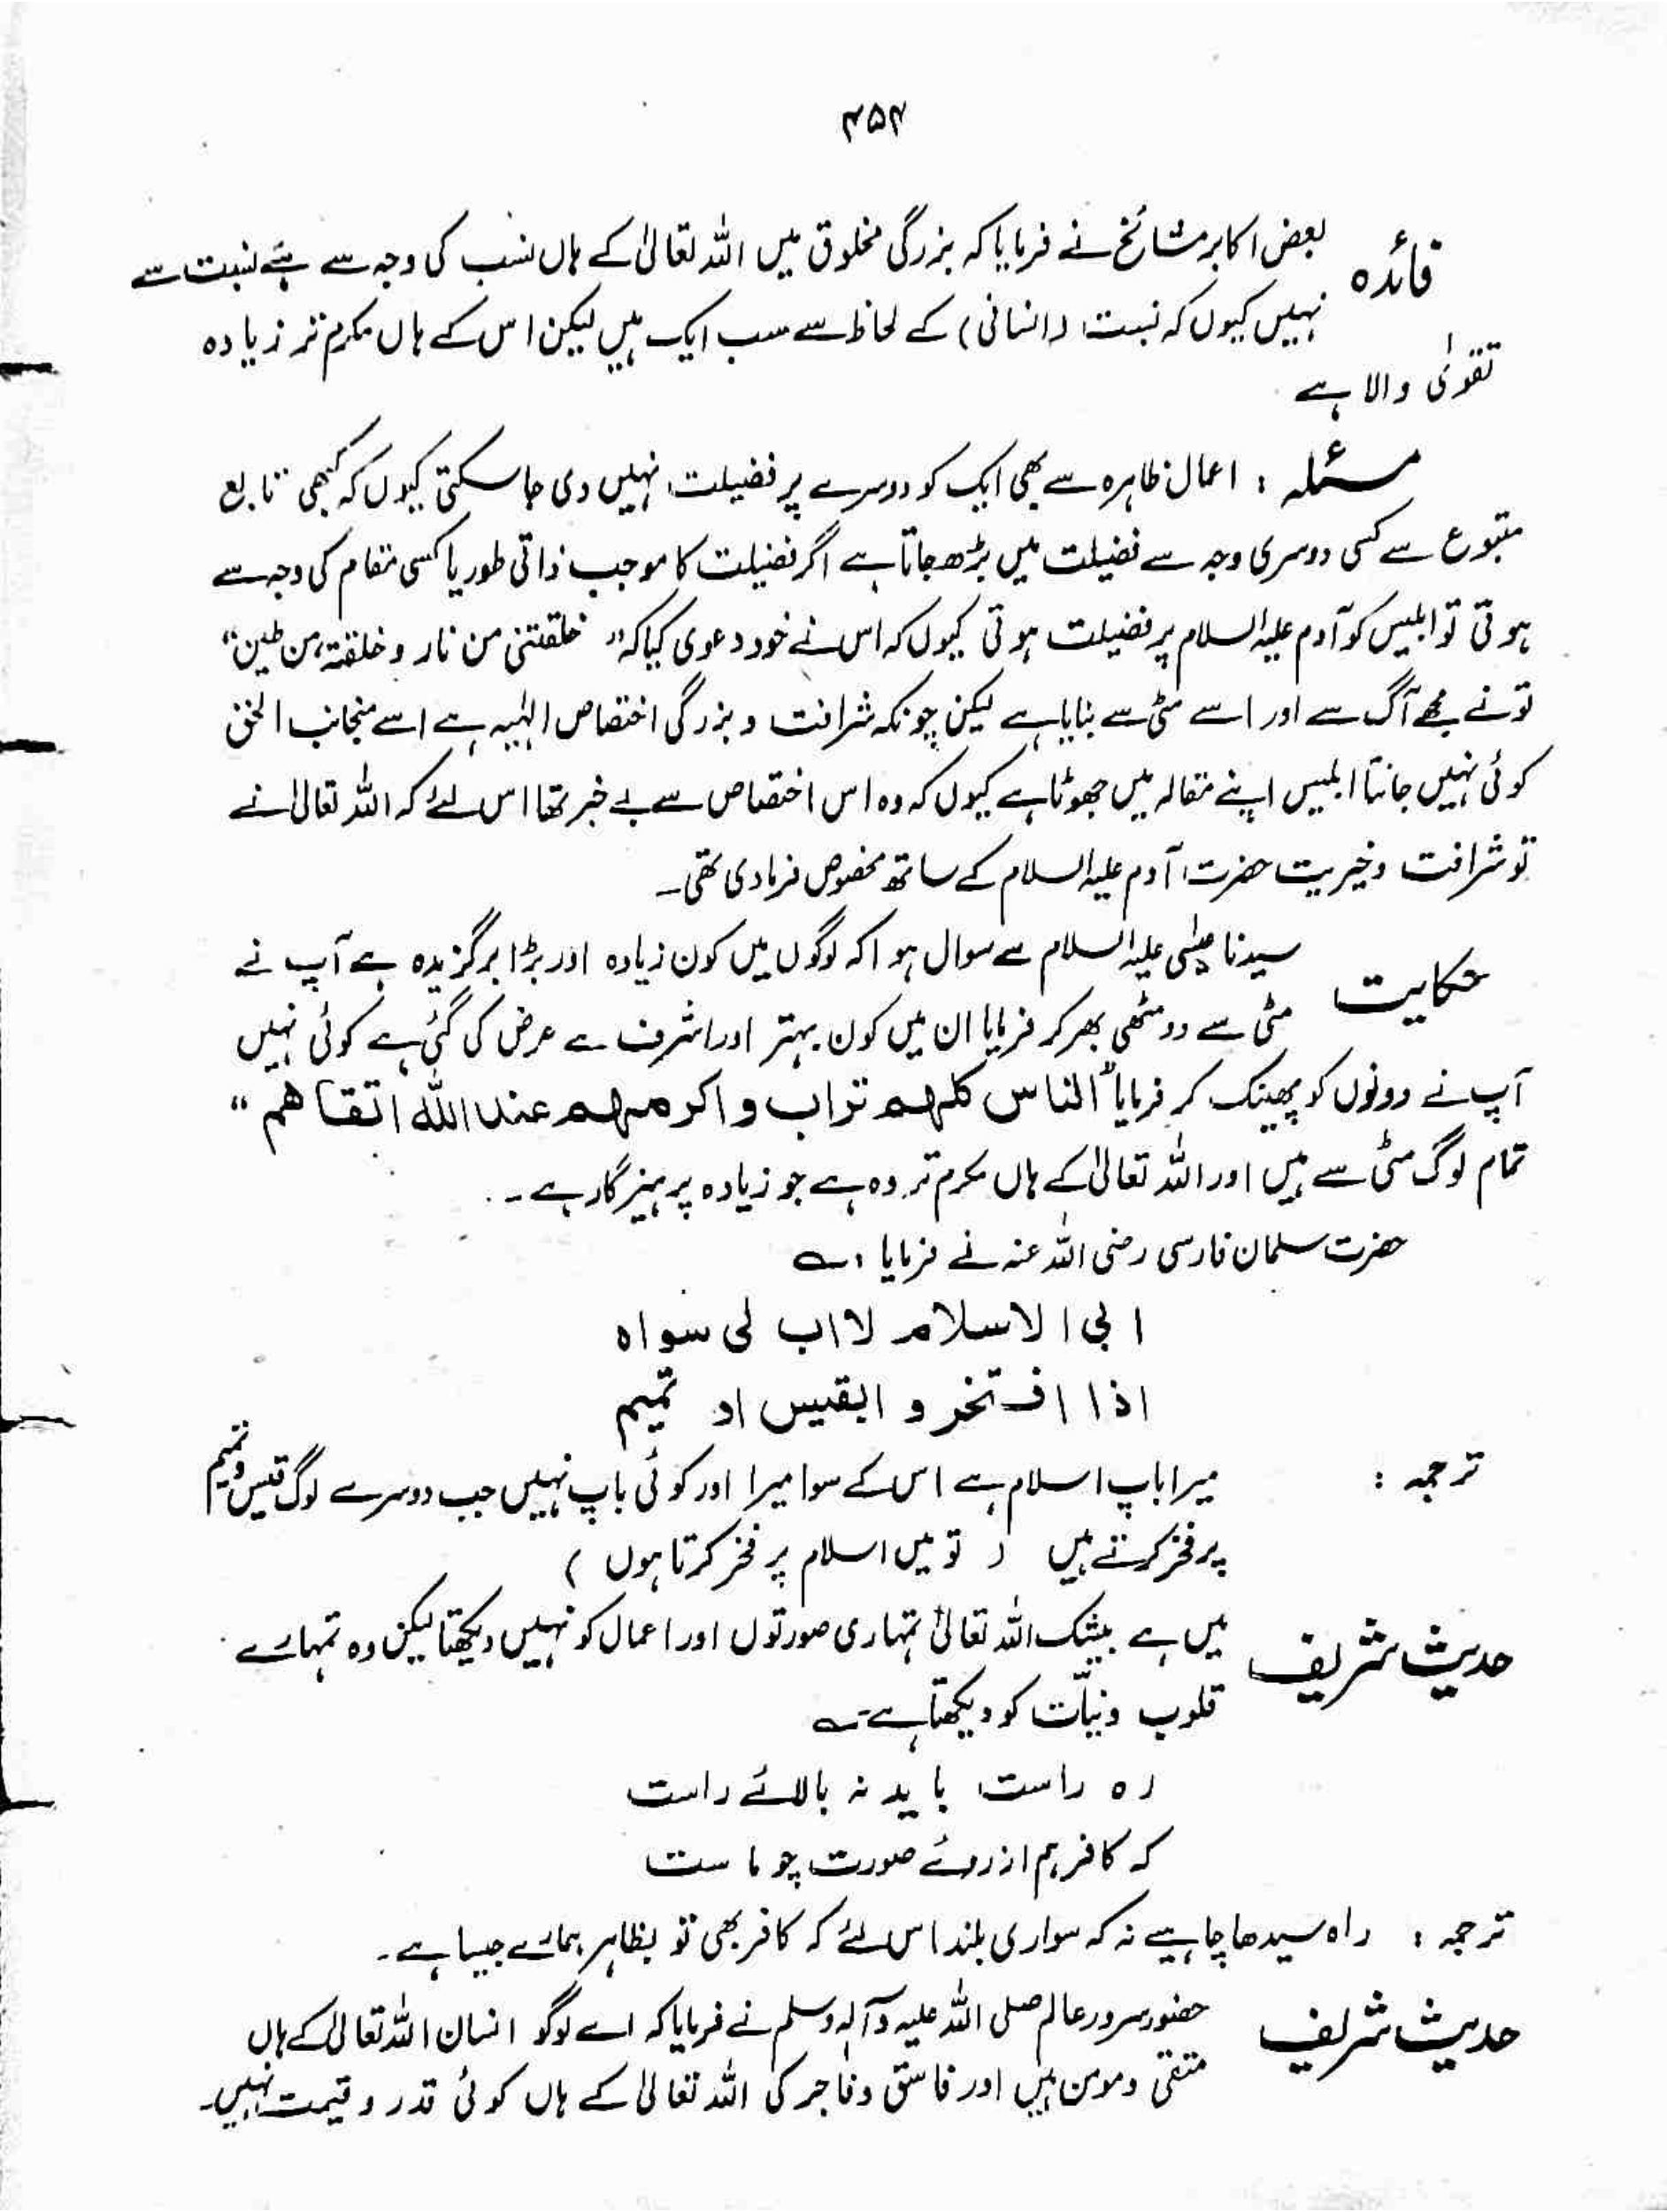 ۴۵۴
فائدہ بعض اکابر مشائخ نے فرمایا کہ بزرگی مخلوق میں اللہ تعالیٰ کے ہاں نسب کی وجہ سے ہے نسبت سے
نہیں کیوں کہ نسبت (انسانی) کے لحاظ سے سب ایک ہیں لیکن اس کے ہاں مکرم تر زیادہ
تقویٰ والا ہے
مسئلہ : اعمال ظاہرہ سے بھی ایک کو دوسرے پر فضیلت نہیں دی جا سکتی کیوں کہ کبھی تابع
متبوع سے کسی دوسری وجہ سے فضیلت میں بڑھ جاتا ہے اگر فضیلت کا موجب ذاتی طور یا کسی مقام کی وجہ سے
ہوتی تو ابلیس کو آدم علیہ السلام پر فضیلت ہوتی کیوں کہ اس نے خود دعوی کیا کہ " خلقتنی من نار و خلقتہ من طین "
تو نے مجھے آگ سے اور اسے مٹی سے بنایا ہے لیکن چونکہ شرافت و بزرگی اختصاص الہٰیہ ہے اسے منجانب الحق
کوئی نہیں جانتا ابلیس اپنے مقالہ میں جھوٹا ہے کیوں کہ وہ اس اختصاص سے بے خبر تھا اس لئے کہ اللہ تعالیٰ نے
تو شرافت و خیریت حضرت آدم علیہ السلام کے ساتھ مخصوص فرما دی تھی۔
حکایت سیدنا عیسٰی علیہ السلام سے سوال ہوا کہ لوگوں میں کون زیادہ اور بڑا برگزیدہ ہے آپ نے
مٹی سے دو مٹھی بھر کر فرمایا ان میں کون بہتر اور اشرف ہے عرض کی گئی ہے کوئی نہیں
آپ نے دونوں کو پھینک کر فرمایا " الناس کلہم تراب و اکرمہم عند اللہ اتقاھم "
تمام لوگ مٹی سے ہیں اور اللہ تعالیٰ کے ہاں مکرم تر وہ ہے جو زیادہ پرہیزگار ہے ۔
حضرت سلمان فارسی رضی اللہ عنہ نے فرمایا ؎
ابی الاسلام لا اب لی سواہ
اذا افتخرو ابقیس او تمیم
ترجمہ : میرا باپ اسلام ہے اس کے سوا میرا اور کوئی باپ نہیں جب دوسرے لوگ قیس و تمیم
پر فخر کرتے ہیں ( تو میں اسلام پر فخر کرتا ہوں )
حدیث شریف میں ہے بیشک اللہ تعالیٰ تمہاری صورتوں اور اعمال کو نہیں دیکھتا لیکن وہ تمہارے
قلوب و نیات کو دیکھتا ہے ؎
رہ راست باید نہ بالائے راست
کہ کافر ہم از روئے صورت چو ما ست
ترجمہ : راہ سیدھا چاہیے نہ کہ سواری بلند اس لئے کہ کافر بھی تو بظاہر ہمارے جیسا ہے ۔
حدیث شریف حضور سرور عالم صلی اللہ علیہ وآلہ وسلم نے فرمایا کہ اے لوگو انسان اللہ تعالیٰ کے ہاں
متقی و مومن ہیں اور فاسق و فاجر کی اللہ تعالیٰ کے ہاں کوئی قدر و قیمت نہیں ۔